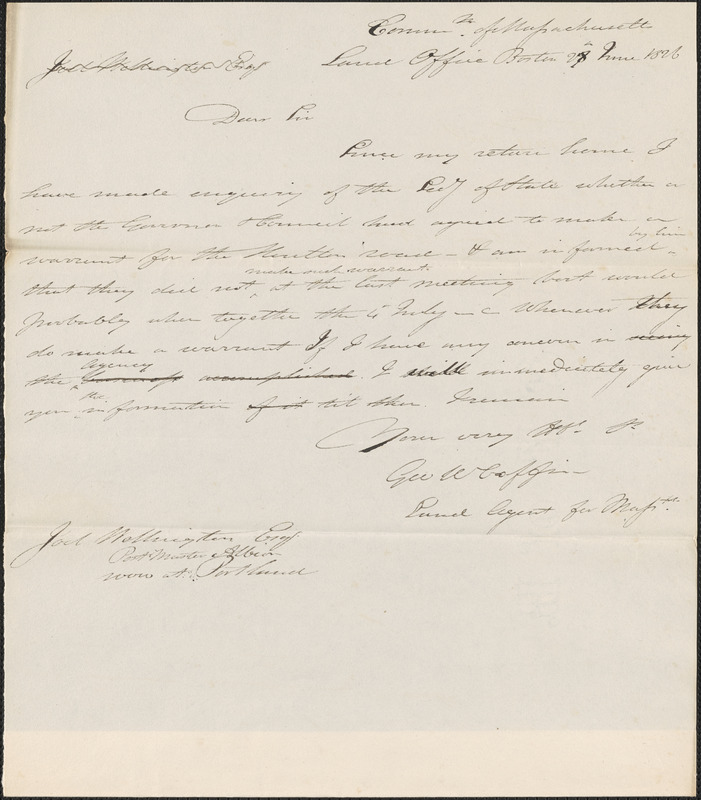 Commth. of Massachusetts
Joel Wellington Esq
Land Office Boston 28th June 1826
Dear Sir
Since my return home I
have made enquiry of the Secy of State whether or
not the Governor & Council had agreed to make a
by him
warrant for the Houlton road - & am informed
make out warrant
that they did not, at the last meeting but would
probably when together the 4th July - Whenever they
do make a warrant If I have any concern in
agency
the Business accomplished. I will immediately give
the
you information of it till then I remain
Your very Hbl. St.
Geo W Coffin
Land Agent for Masstts.
Joel Wellington Esq
Post Master Albion
now at Portland